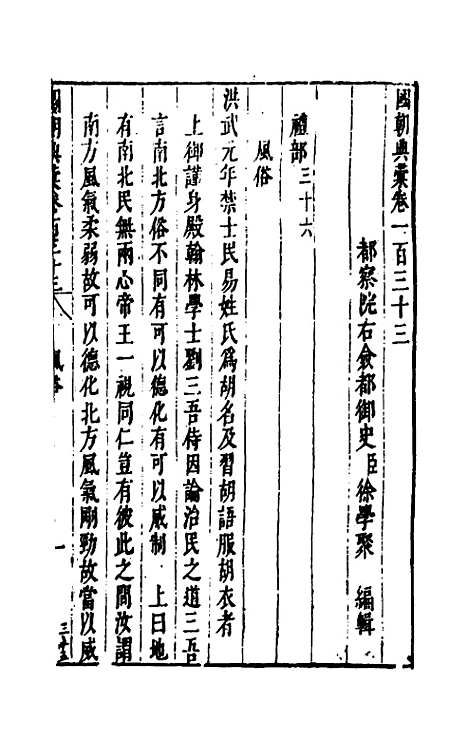 國朝典彙卷一百三十三
都察院右僉都御史臣徐學聚 編輯
禮部三十六
風俗
洪武元年禁士民易姓氏爲胡名及習胡語服胡衣者
上御謹身殿翰林學士劉三吾侍因論治民之道三吾
言南北方俗不同有可以德化有可以威制 上曰地
有南北民無兩心帝王一視同仁豈有彼此之間汝謂
南方風氣柔弱故可以德化北方風氣剛勁故當以威
國朝典彙卷一百三十三 風俗 一